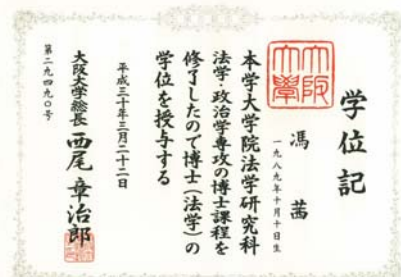 学位記
馮茜
一九八九年十月十日生
大阪大學
本学大学院法学研究科
法学・政治学専攻の博士課程を
修了したので博士(法学)の
学位を授与する
平成三十年三月二十二日
大阪大学総長 西尾章治郎
第二九四九〇号